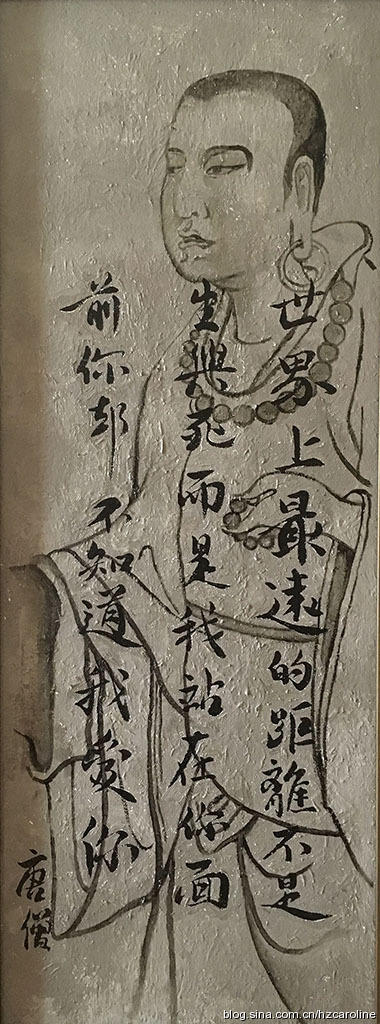 世界上最遠的距離不是
生與死而是我站在你面
前你却不知道我愛你
唐僧
blog.sina.com.cn/hzcaroline